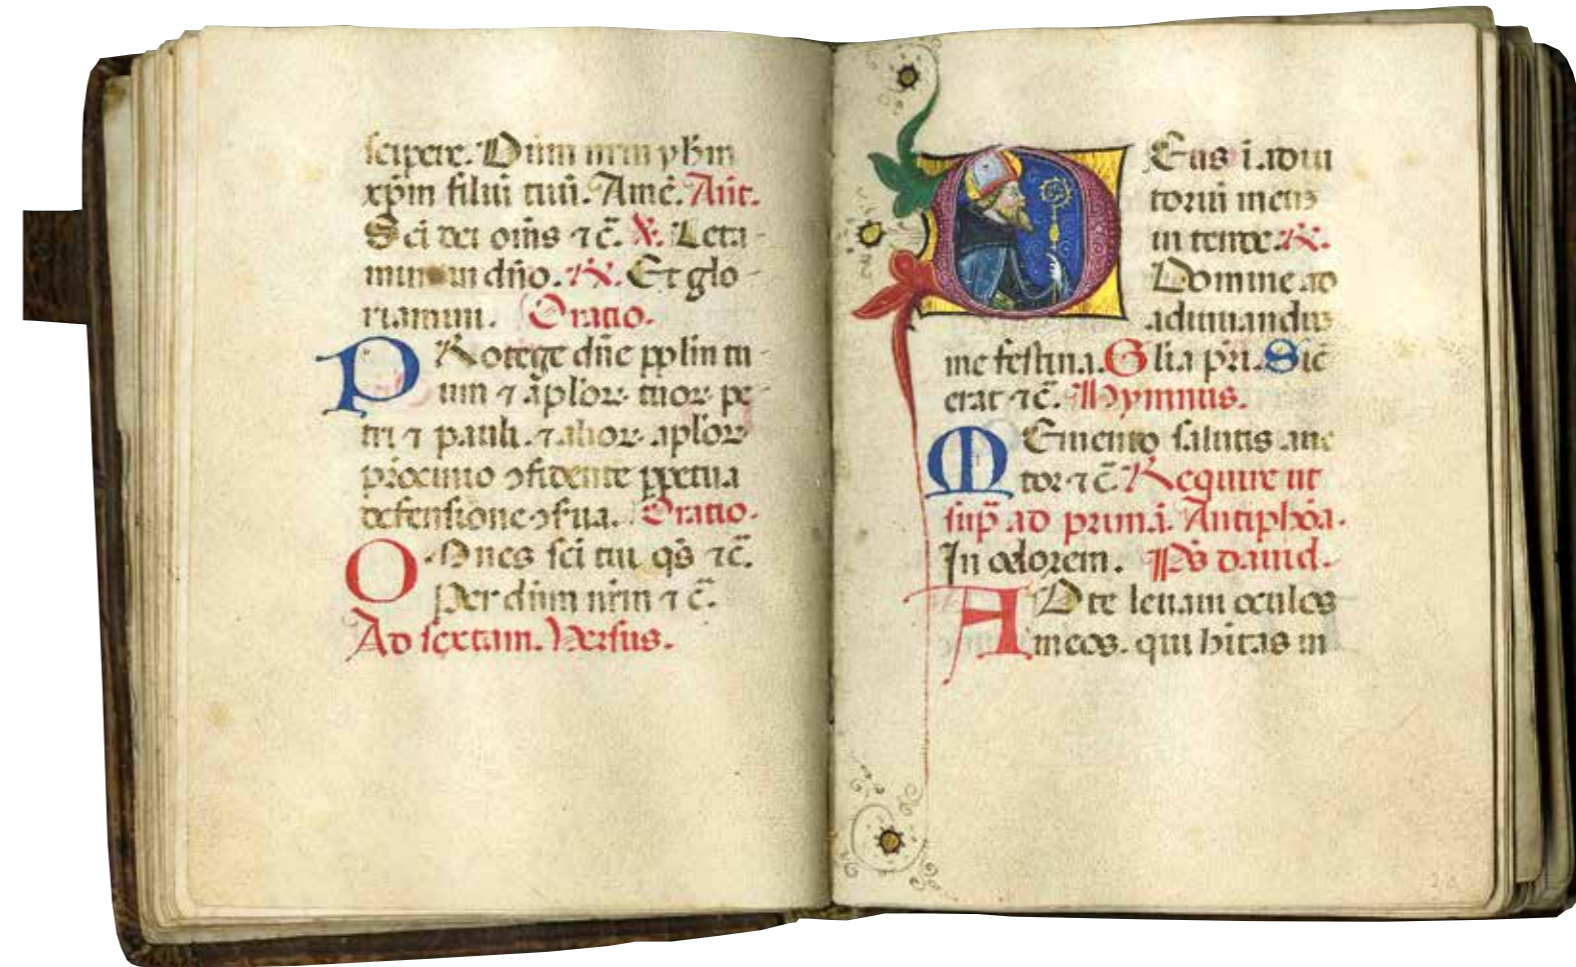 scipere. Dnm nrm yhm
xpm filiu tuu. Amē. Añt.
Sci dei oms ⁊ c̄. ℣. Leta
mini in dño. ℟. Et glo
riamini. Oratio.
PRotege dñe pplm tu
um ⁊ apl'oꝝ tuoꝝ pe
tri ⁊ pauli. ⁊ alioꝝ aplôꝝ
prōcinio ꝯfidente ppetua
defensione ꝯsrua. Oratio.
OMnes sci tui qs̄ ⁊c̄.
Per dnm nrm ⁊ c̄.
Ad sextam. Versus.
DEus ī. adiu
toriū meuꝫ
in tende. ℟.
Domine ad
adiuuanduꝫ
me festina. Glia pri. Sic̄
erat ⁊c̄. Hymnus.
MEmento salutis auc
tor ⁊ c̄. Require ut
sup̄ ad primā. Antiphōa.
In odorem. Ps̄ dauid.
AD te leuaui oculos
meos. qui hitas in